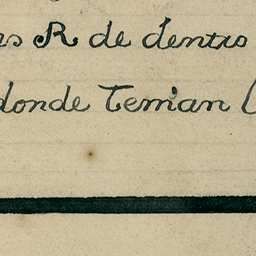 es R de dentro
donde Temian (